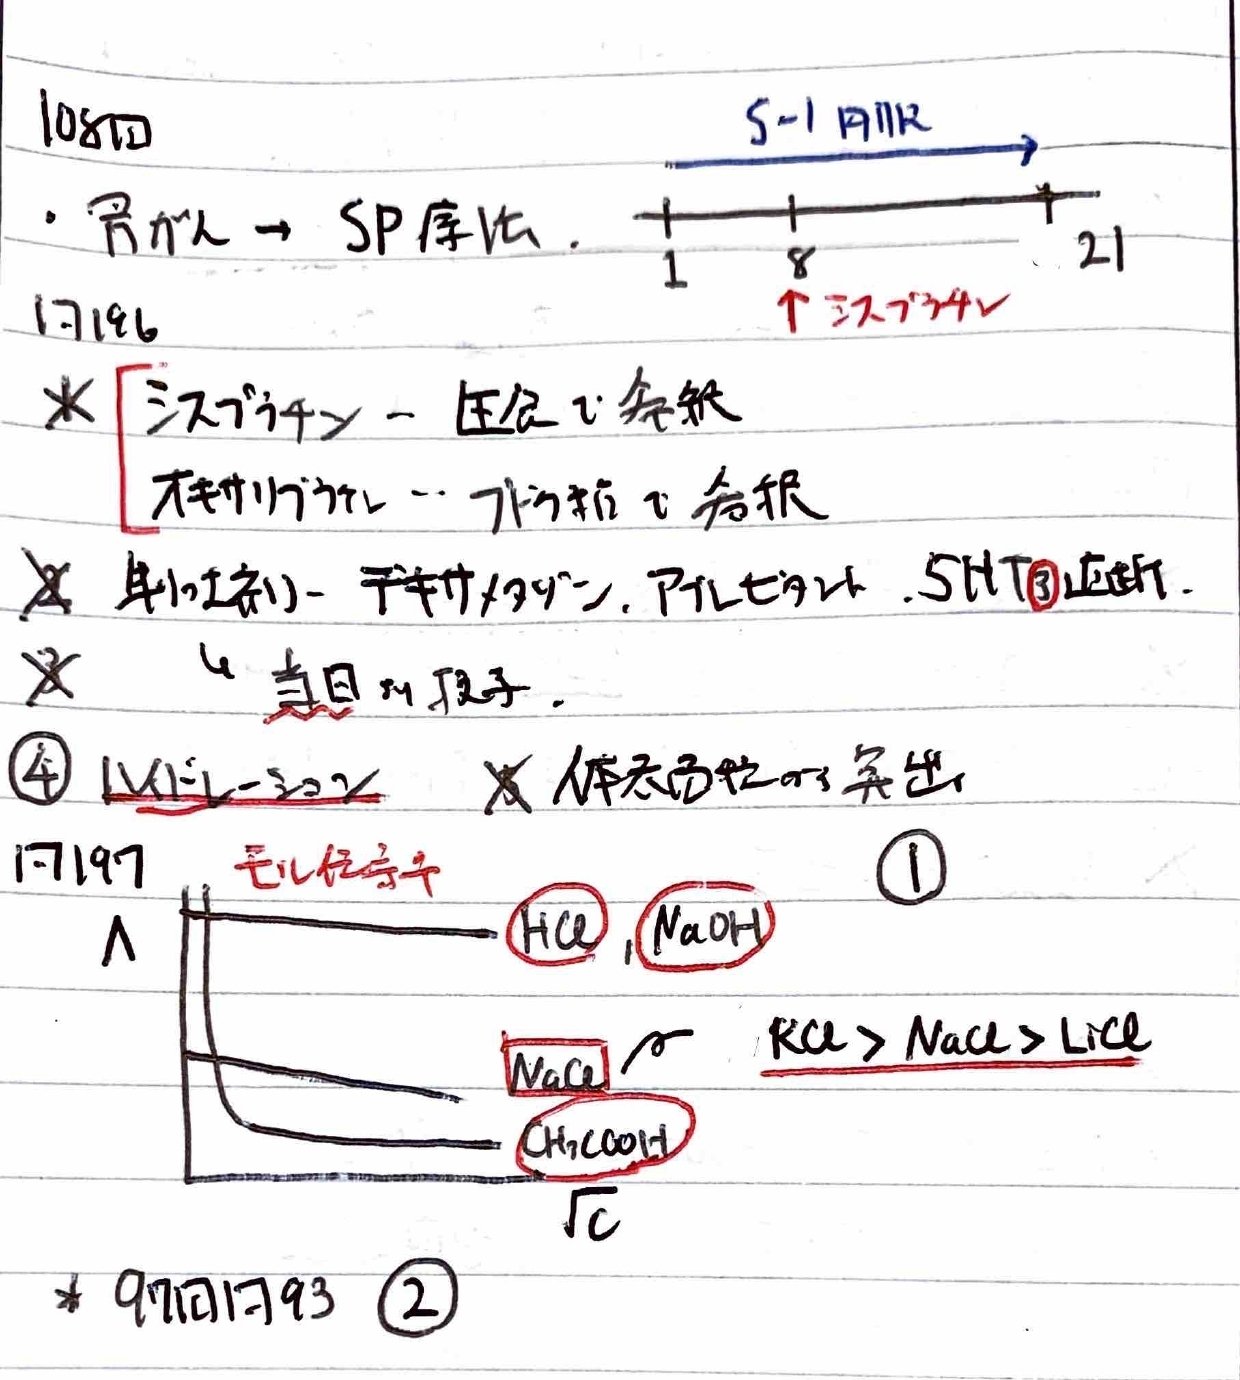 108回
S-1 内服
・胃がん → SP療法.
1 8 21
↑シスプラチン
問196
※ シスプラチン − 生食で希釈
オキサリプラチン ‥ ブドウ糖で希釈
2 制吐剤 − デキサメタゾン. アプレピタント. 5HT3遮断.
3 ↳ 当日に投与.
④ ハイドレーション 5 体表面積から算出
問197 モル伝導率 ①
Λ HCl, NaOH
NaCl KCl > NaCl > LiCl
CH3COOH
√C
* 97回問93 ②